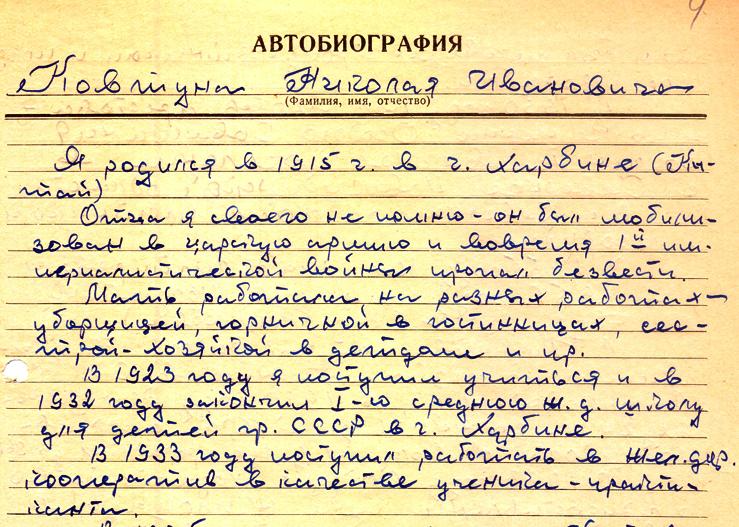 4
АВТОБИОГРАФИЯ
Ковтуна Николая Ивановича
(Фамилия, имя, отчество)
Я родился в 1915 г. в г. Харбине (Ки-
тай)
Отца я своего не помню - он был мобили-
зован в царскую армию и вовремя 1й им-
периалистической войны пропал безвести.
Мать работала на разных работах -
уборщицей, горничной в гостинницах, сес-
трой-хозяйкой в детдоме и пр.
В 1923 году я поступил учиться и в
1932 году закончил I-ю среднюю ж.д. школу
для детей гр. СССР в г. Харбине.
В 1933 году поступил работать в жел.дор.
кооператив в качестве ученика-практи-
канта.